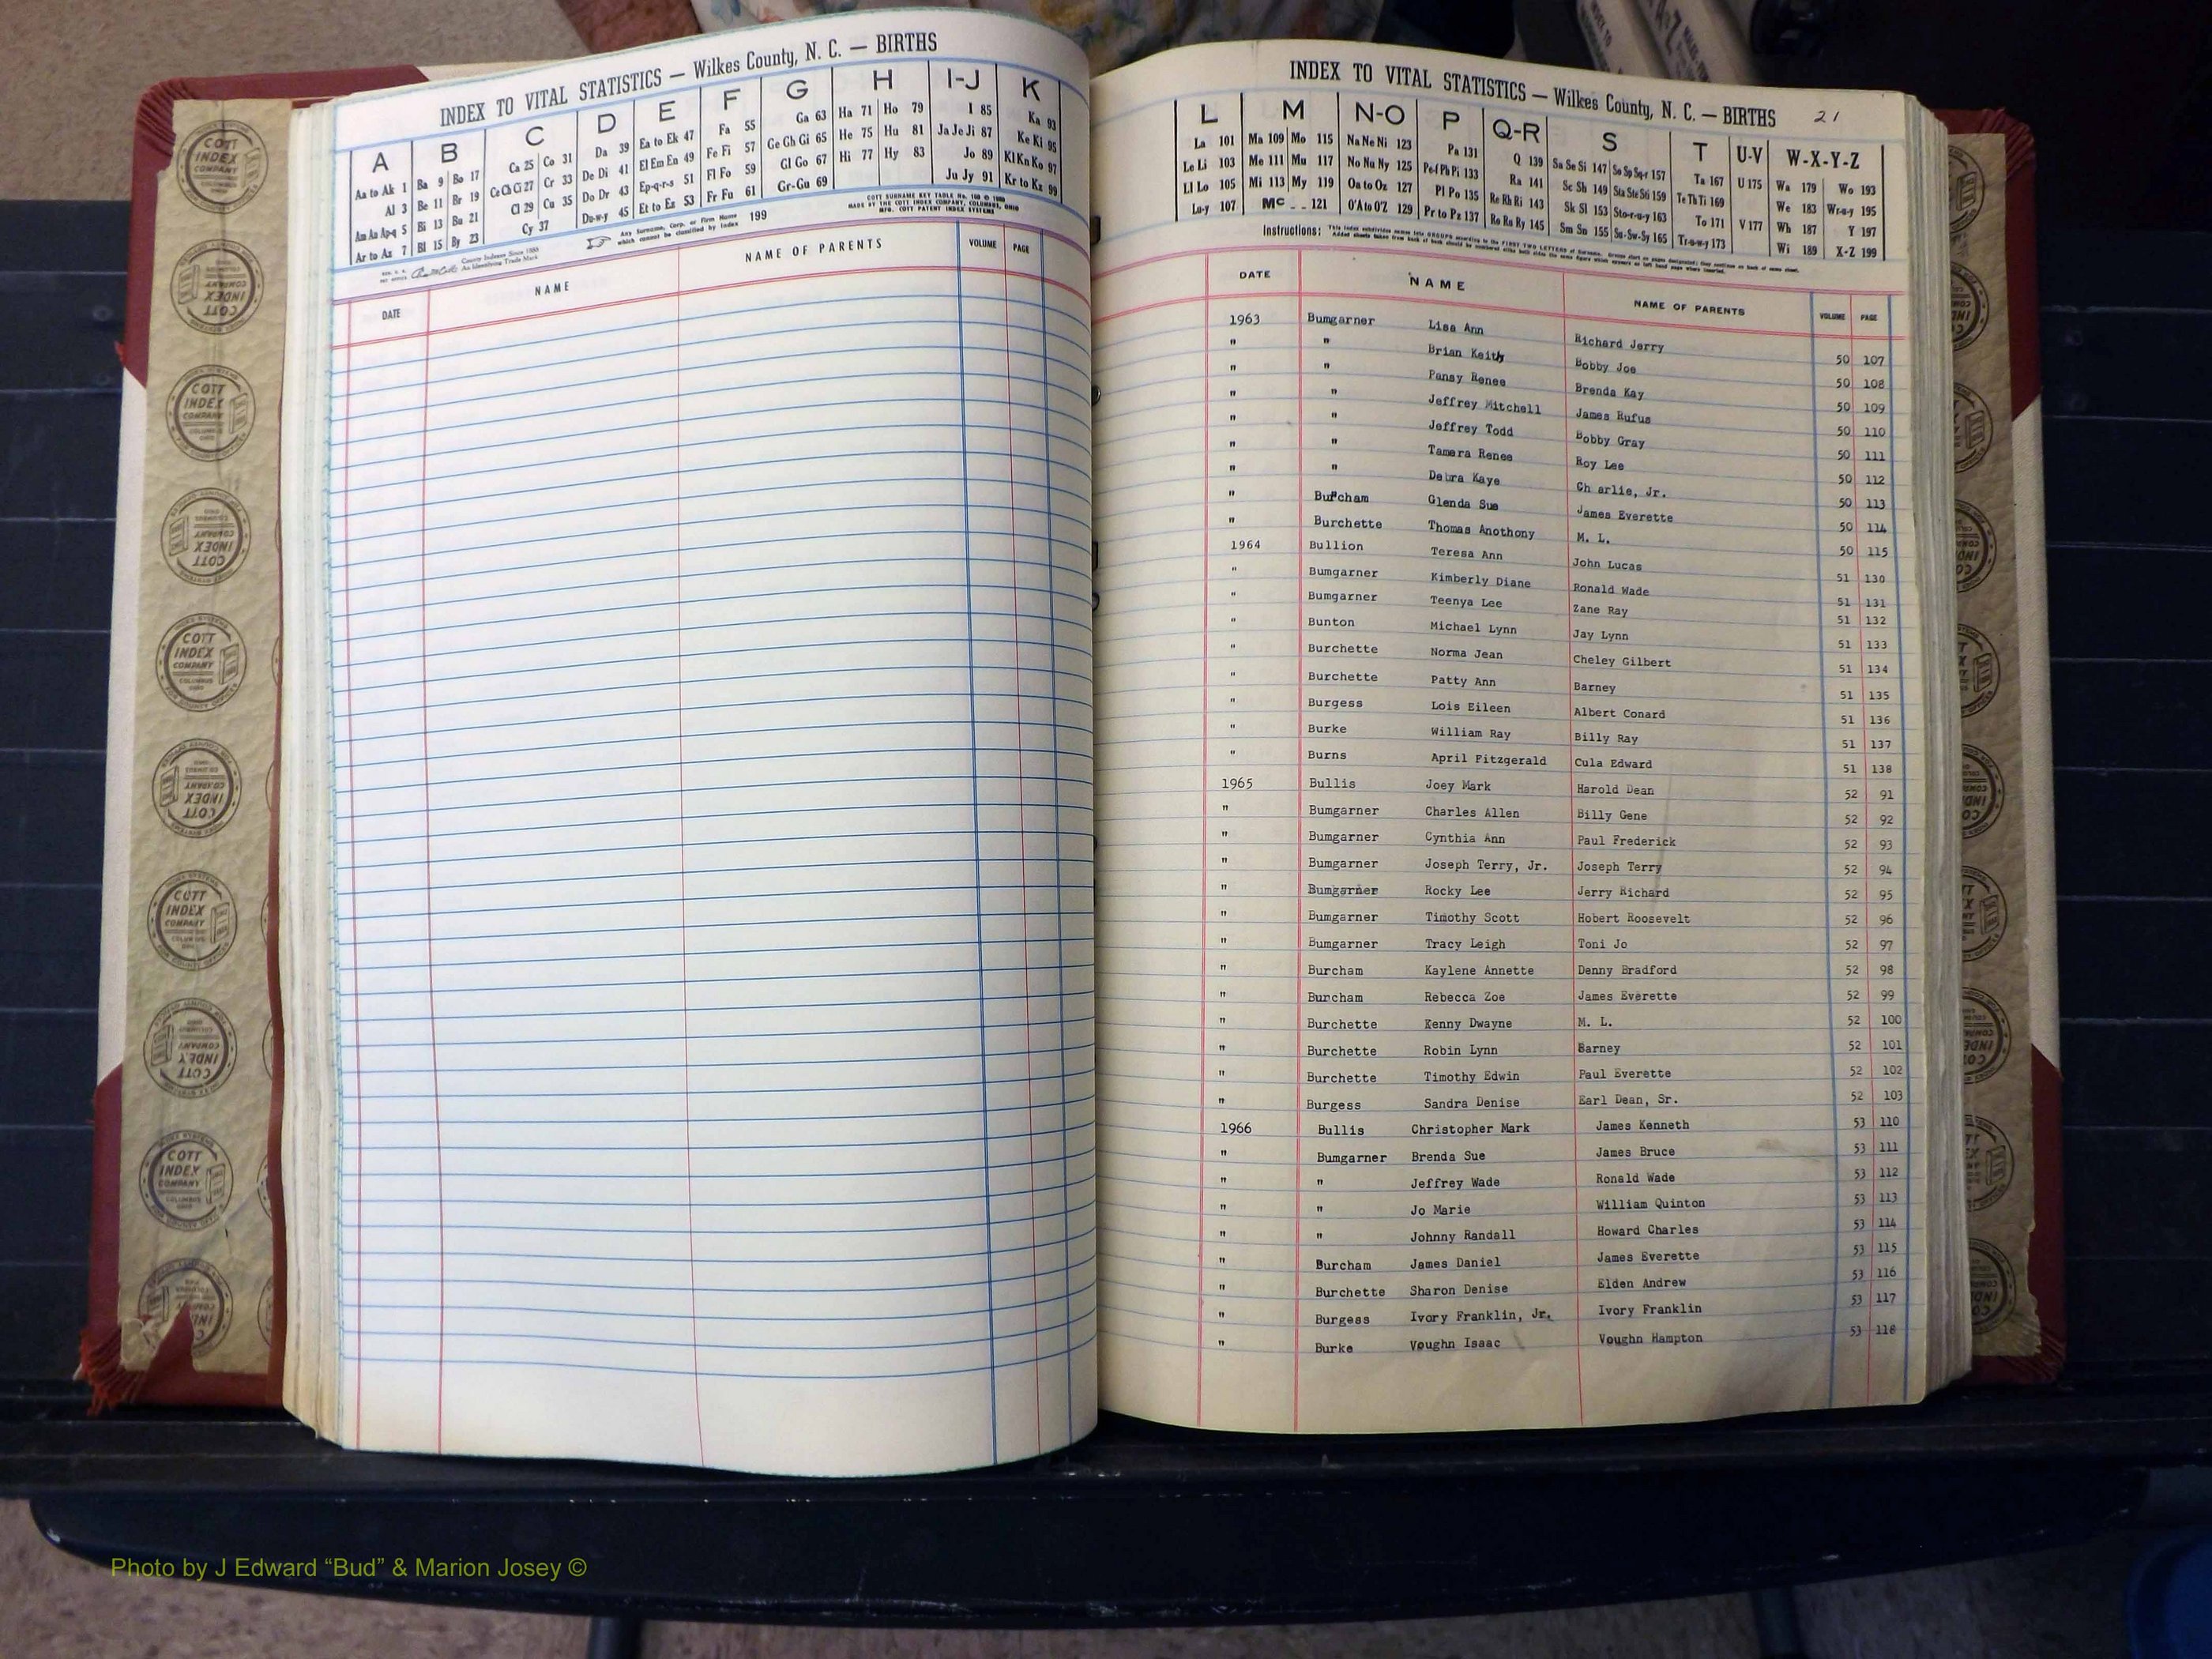 INDEX TO VITAL STATISTICS — Wilkes County, N. C. — BIRTHS
A B C D E F G H I-J K
Aa to Ak 1 Ba 9 Bo 17 Ca 25 Co 31 Da 39 Ea to Ek 47 Fa 55 Ga 63 Ha 71 Ho 79 I 85 Ka 93
Al 3 Be 11 Br 19 Ce Ch Ci 27 Cr 33 De Di 41 El Em En 49 Fe Fi 57 Ge Gh Gi 65 He 75 Hu 81 Ja Je Ji 87 Ke Ki 95
Am An Ap-q 5 Bi 13 Bu 21 Cl 29 Cu 35 Do Dr 43 Ep-q-r-s 51 Fl Fo 59 Gl Go 67 Hi 77 Hy 83 Jo 89 Kl Kn Ko 97
Ar to Az 7 Bl 15 By 23 Cy 37 Du-w-y 45 Et to Ez 53 Fr Fu 61 Gr-Gu 69 Ju Jy 91 Kr to Kz 99
County Indexes Since 1888
An Identifying Trade Mark
Any Surname, Corp. or Firm Name
which cannot be classified by Index 199
COTT SURNAME KEY TABLE
MADE BY THE COTT INDEX COMPANY, COLUMBUS, OHIO
MFG. COTT PATENT INDEX SYSTEMS
DATE NAME NAME OF PARENTS VOLUME PAGE
INDEX TO VITAL STATISTICS — Wilkes County, N. C. — BIRTHS 21
L M N-O P Q-R S T U-V W-X-Y-Z
La 101 Ma 109 Mo 115 Na Ne Ni 123 Pa 131 Q 139 Sa Se Si 147 So Sp Sq-r 157 Ta 167 U 175 Wa 179 Wo 193
Le Li 103 Me 111 Mu 117 No Nu Ny 125 Pe-f Ph Pi 133 Ra 141 Sc Sh 149 Sta Ste Sti 159 Te Th Ti 169 We 183 Wr-u-y 195
Ll Lo 105 Mi 113 My 119 Oa to Oz 127 Pl Po 135 Re Rh Ri 143 Sk Sl 153 Sto-r-u-y 163 To 171 V 177 Wh 187 Y 197
Lu-y 107 Mc 121 O'A to O'Z 129 Pr to Pz 137 Ro Ru Ry 145 Sm Sn 155 Su-Sw-Sy 165 Tr-u-w-y 173 Wi 189 X-Z 199
Instructions:
DATE NAME NAME OF PARENTS VOLUME PAGE
1963 Bumgarner Lisa Ann Richard Jerry 50 107
" " Brian Keith Bobby Joe 50 108
" " Pansy Renee Brenda Kay 50 109
" " Jeffrey Mitchell James Rufus 50 110
" " Jeffrey Todd Bobby Gray 50 111
" " Tamera Renee Roy Lee 50 112
" " Debra Kaye Ch arlie, Jr. 50 113
" Burcham Glenda Sue James Everette 50 114
" Burchette Thomas Anothony M. L. 50 115
1964 Bullion Teresa Ann John Lucas 51 130
" Bumgarner Kimberly Diane Ronald Wade 51 131
" Bumgarner Teenya Lee Zane Ray 51 132
" Bunton Michael Lynn Jay Lynn 51 133
" Burchette Norma Jean Cheley Gilbert 51 134
" Burchette Patty Ann Barney 51 135
" Burgess Lois Eileen Albert Conard 51 136
" Burke William Ray Billy Ray 51 137
" Burns April Fitzgerald Cula Edward 51 138
1965 Bullis Joey Mark Harold Dean 52 91
" Bumgarner Charles Allen Billy Gene 52 92
" Bumgarner Cynthia Ann Paul Frederick 52 93
" Bumgarner Joseph Terry, Jr. Joseph Terry 52 94
" Bumgarner Rocky Lee Jerry Richard 52 95
" Bumgarner Timothy Scott Hobert Roosevelt 52 96
" Bumgarner Tracy Leigh Toni Jo 52 97
" Burcham Kaylene Annette Denny Bradford 52 98
" Burcham Rebecca Zoe James Everette 52 99
" Burchette Kenny Dwayne M. L. 52 100
" Burchette Robin Lynn Barney 52 101
" Burchette Timothy Edwin Paul Everette 52 102
" Burgess Sandra Denise Earl Dean, Sr. 52 103
1966 Bullis Christopher Mark James Kenneth 53 110
" Bumgarner Brenda Sue James Bruce 53 111
" " Jeffrey Wade Ronald Wade 53 112
" " Jo Marie William Quinton 53 113
" " Johnny Randall Howard Charles 53 114
" Burcham James Daniel James Everette 53 115
" Burchette Sharon Denise Elden Andrew 53 116
" Burgess Ivory Franklin, Jr. Ivory Franklin 53 117
" Burke Voughn Isaac Voughn Hampton 53 118
COTT INDEX COMPANY COLUMBUS OHIO
Photo by J Edward “Bud” & Marion Josey ©